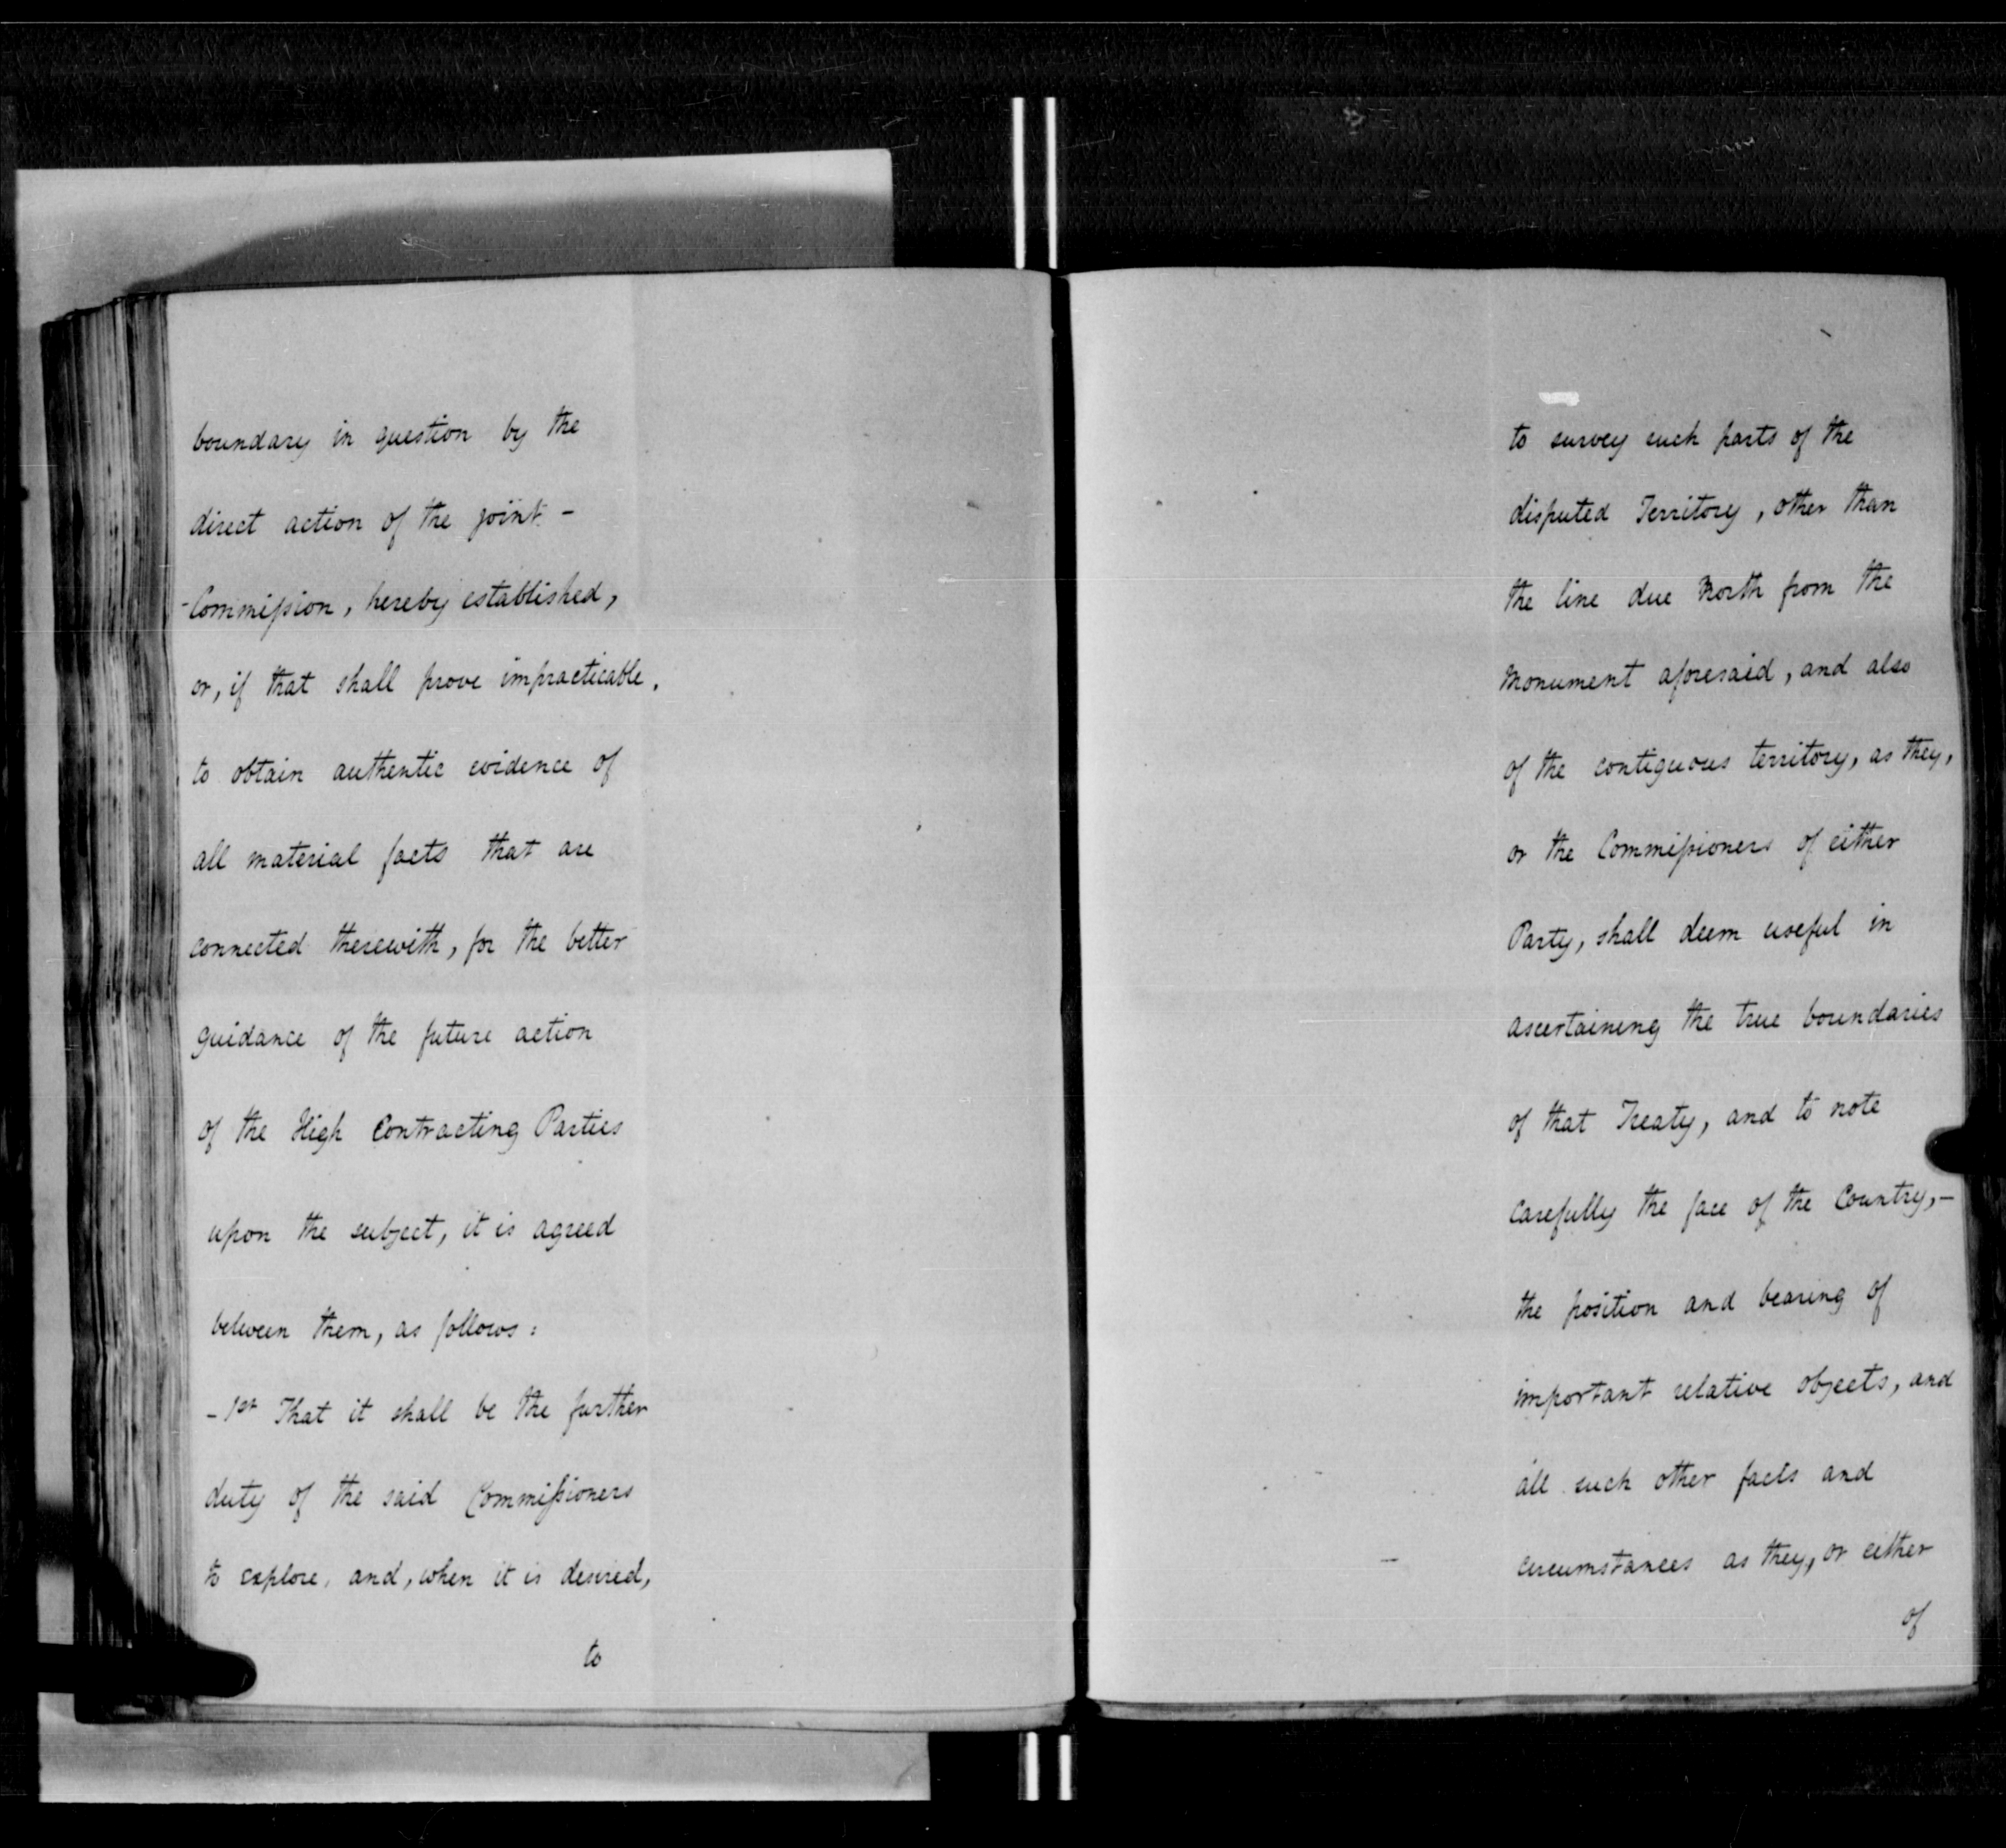 boundary in question by the
direct action of the joint -
- Commission, hereby established,
or, if that shall prove impracticable,
to obtain authentic evidence of
all material facts that are
connected therewith, for the better
guidance of the future action
of the High Contracting Parties
upon the subject, it is agreed
between them, as follows:
- 1st That it shall be the further
duty of the said Commissioners
to explore, and, when it is desired,
to
to survey such parts of the
disputed Territory, other than
the line due North from the
Monument aforesaid, and also
of the contiguous territory, as they,
or the Commissioners of either
Party, shall deem useful in
ascertaining the true boundaries
of that Treaty, and to note
carefully the face of the Country, -
the position and bearing of
important relative objects, and
all such other facts and
circumstances as they, or either
of